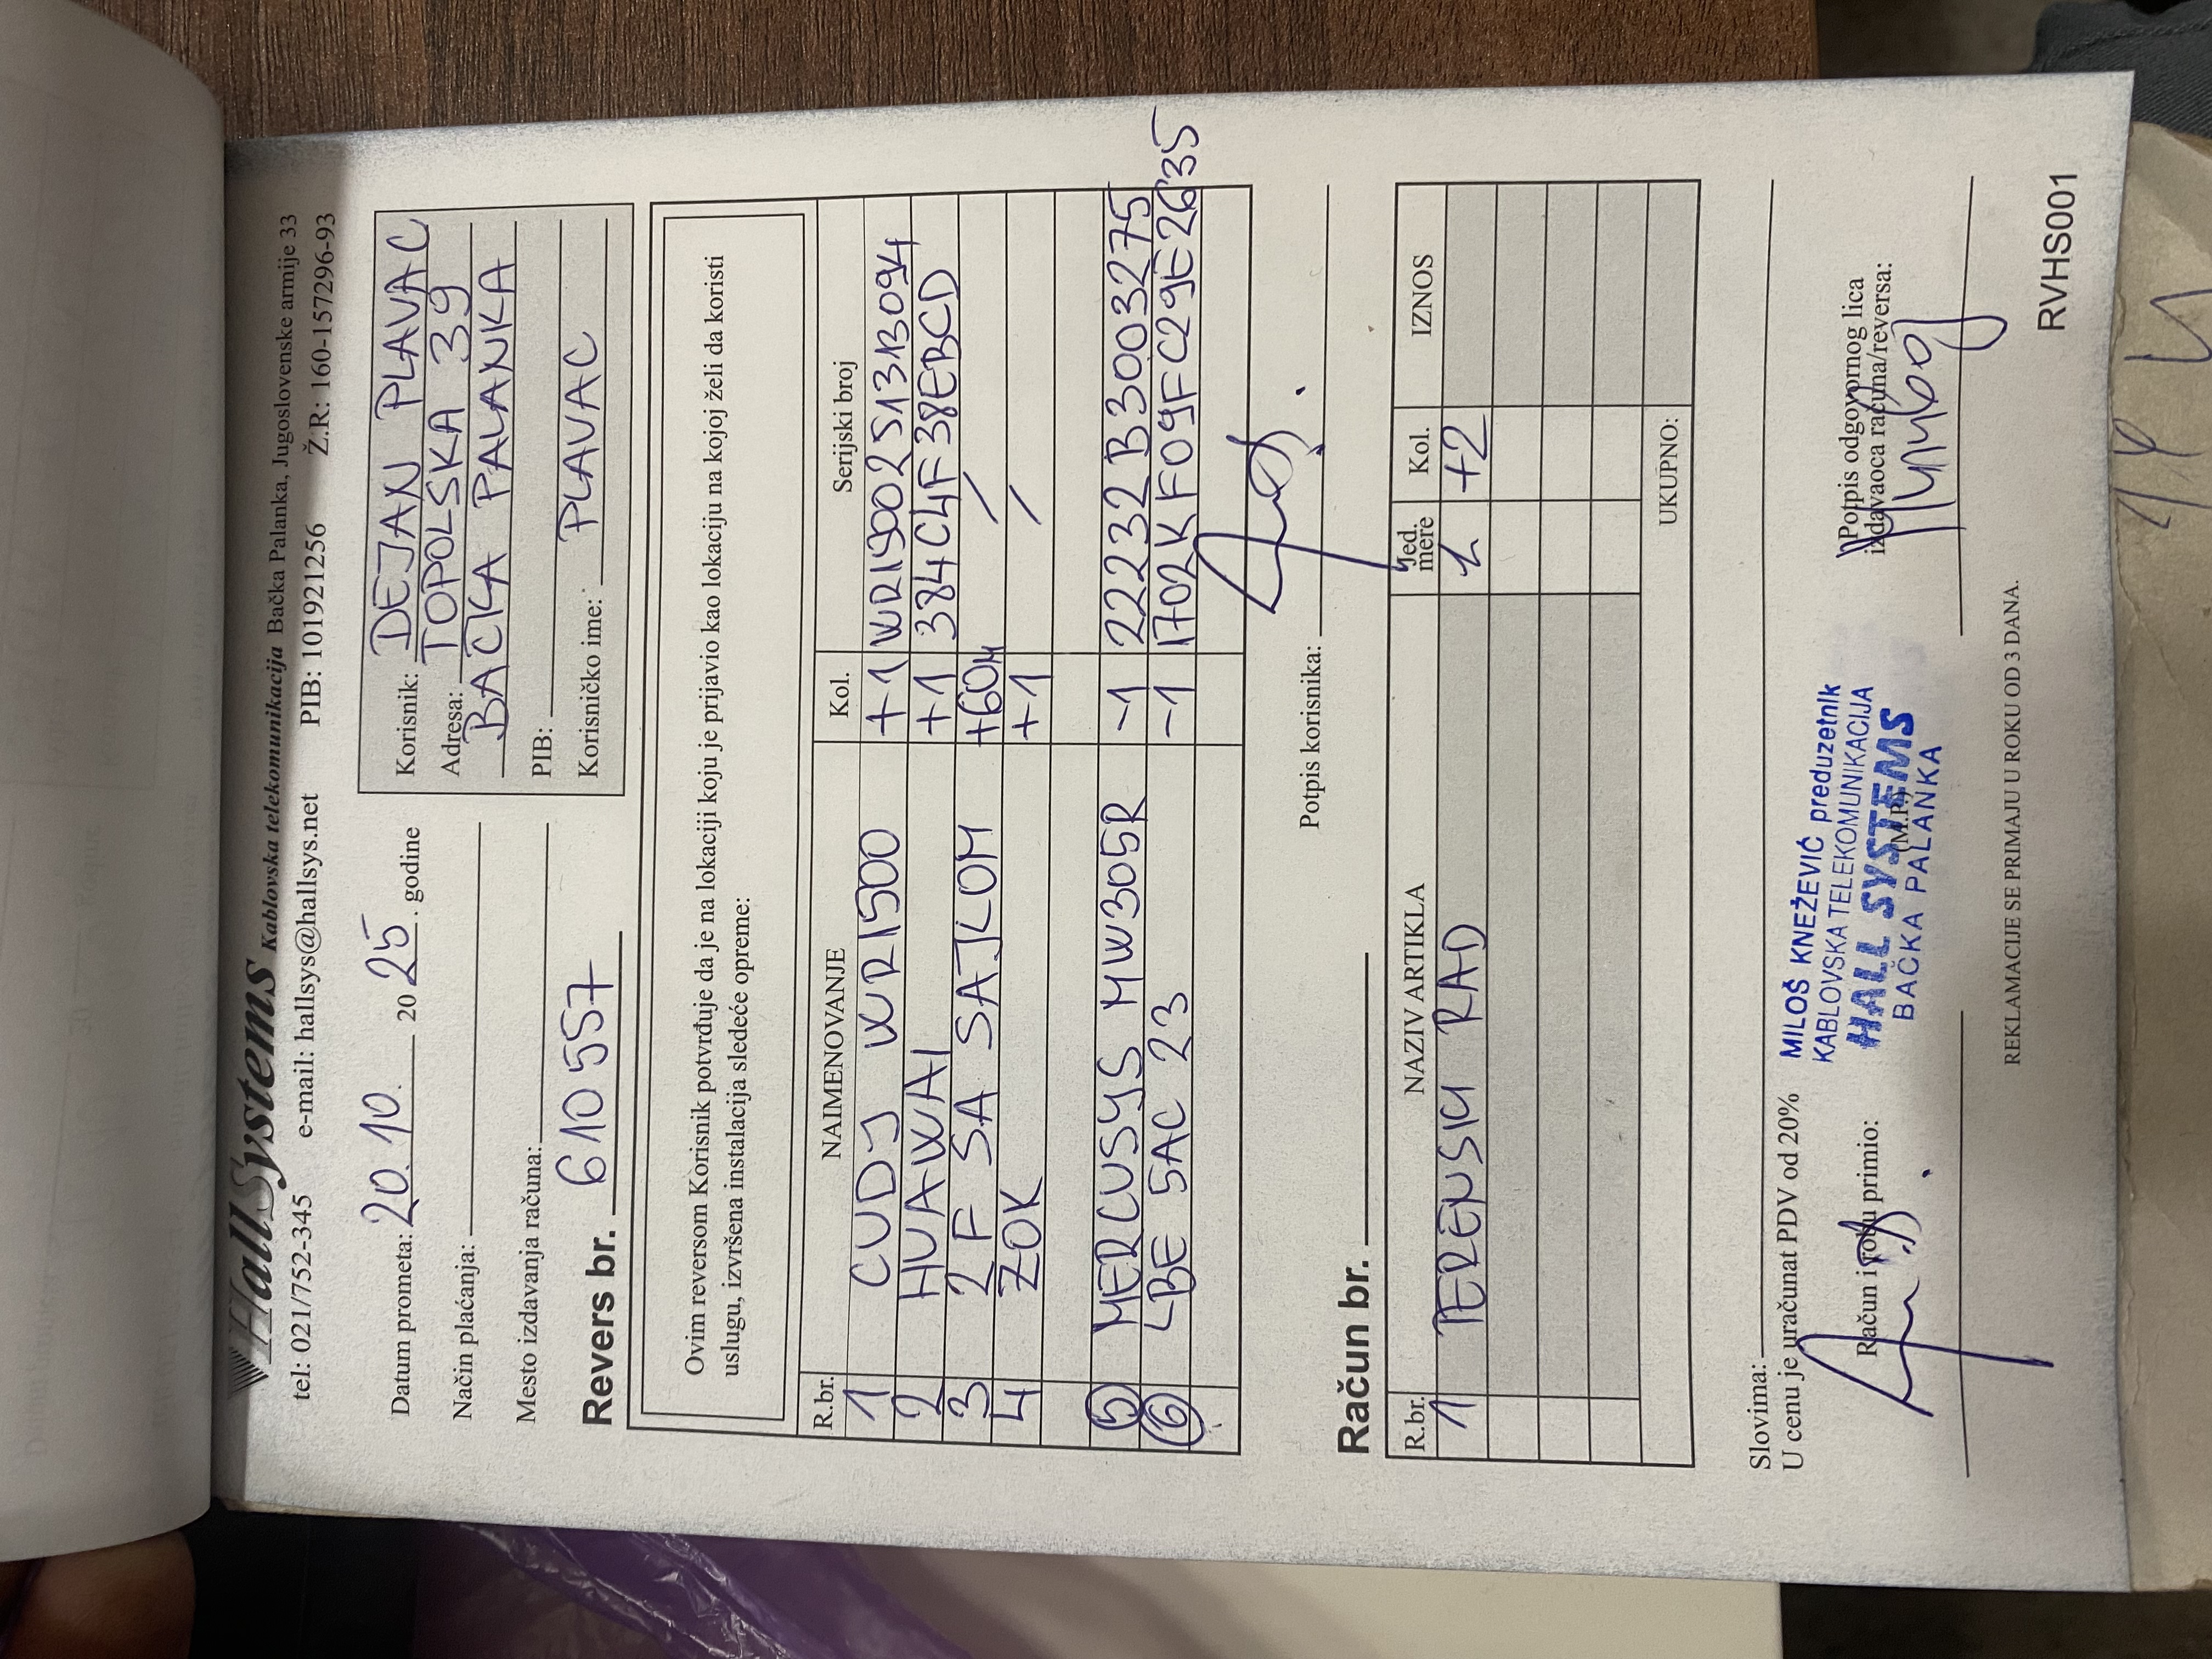 HallSystems Kablovska telekomunikacija Bačka Palanka, Jugoslovenske armije 33
tel: 021/752-345 e-mail: hallsys@hallsys.net PIB: 101921256 Ž.R: 160-157296-93
Datum prometa: 20.10. 2025. godine
Način plaćanja:
Mesto izdavanja računa:
Revers br. 610557
Korisnik: DEJAN PLAVAC
Adresa: TOPOLSKA 39
BAČKA PALANKA
PIB:
Korisničko ime: PLAVAC
Ovim reversom Korisnik potvrđuje da je na lokaciji koju je prijavio kao lokaciju na kojoj želi da koristi
uslugu, izvršena instalacija sledeće opreme:
R.br. NAIMENOVANJE Kol. Serijski broj
1 CUDJ WR1500 +1 WR1500251313094
2 HUAWAI +1 384C4F38EBCD
3 2F SA SAJLOM +60m /
4 ZOK +1 /
5 MERCUSYS MW305R -1 22232B3003275
6 LBE 5AC 23 -1 1702KF09FC29E2635
Potpis korisnika:
Račun br.
R.br. NAZIV ARTIKLA Jed. mere Kol. IZNOS
1 TERENSKI RAD h +2
UKUPNO:
Slovima:
U cenu je uračunat PDV od 20%
MILOŠ KNEŽEVIĆ preduzetnik
KABLOVSKA TELEKOMUNIKACIJA
HALL SYSTEMS
BAČKA PALANKA
(M.P.)
Račun i robu primio:
Potpis odgovornog lica
izdavaoca računa/reversa:
REKLAMACIJE SE PRIMAJU U ROKU OD 3 DANA.
RVHS001